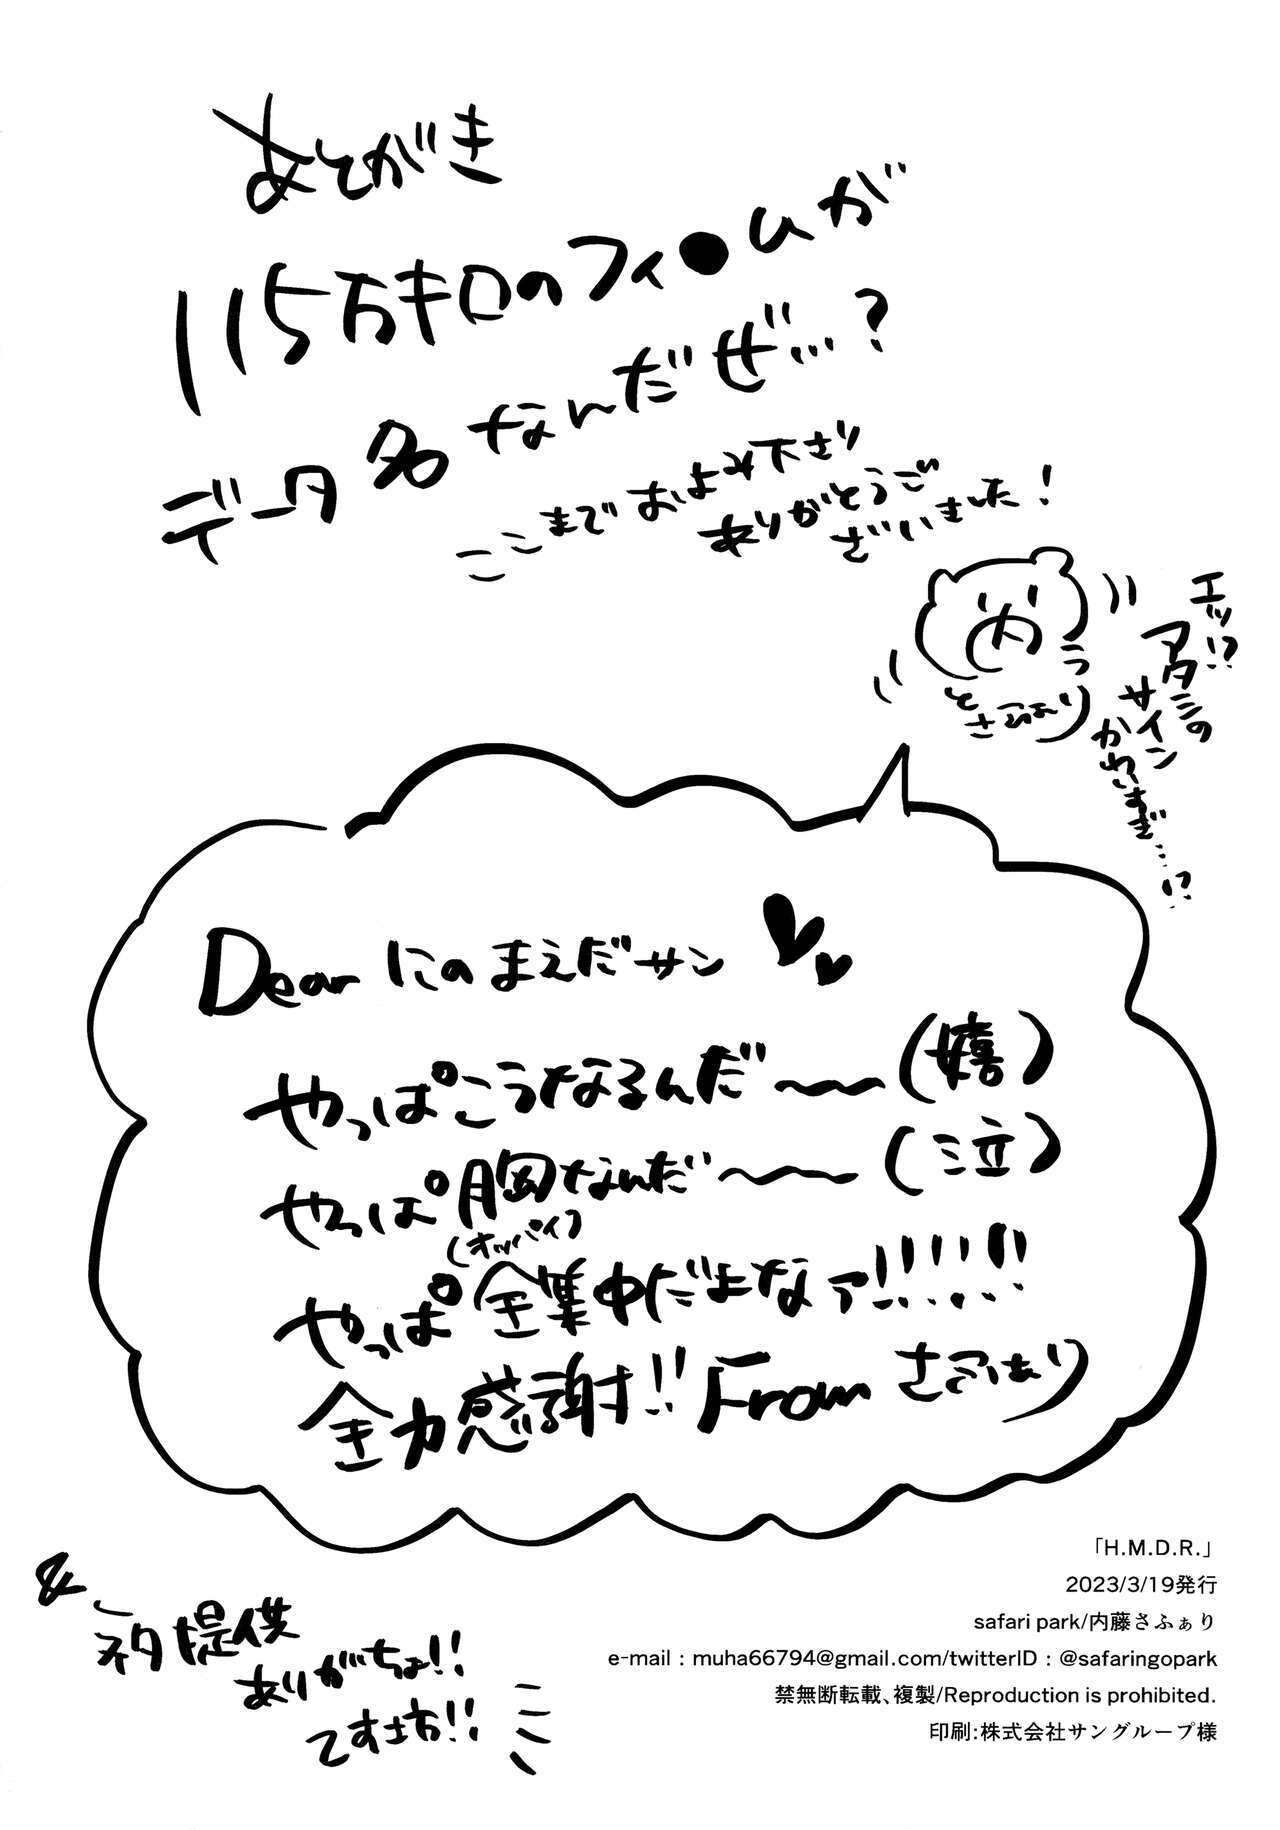 あとがき
115万キロのフィ●ムが
データ名なんだぜ…?
ここまでおよみ下さり
ありがとうご
ざいました!
エッ!?
アタシの
サイン
かわいすぎ…!?
内
う
と
さふぁり
Dear にのまえだサン
やっぱこうなるんだ〜〜(嬉)
やっぱ胸なんだ〜〜(泣)
(オッパイ)
やっぱ全集中だよなァ!!!!!
全力感謝!! From さふぁり
& ネタ提供
ありがちょ!!
てす坊!!
「H.M.D.R.」
2023/3/19発行
safari park/内藤さふぁり
e-mail : muha66794@gmail.com/twitterID : @safaringopark
禁無断転載、複製/Reproduction is prohibited.
印刷:株式会社サングループ様